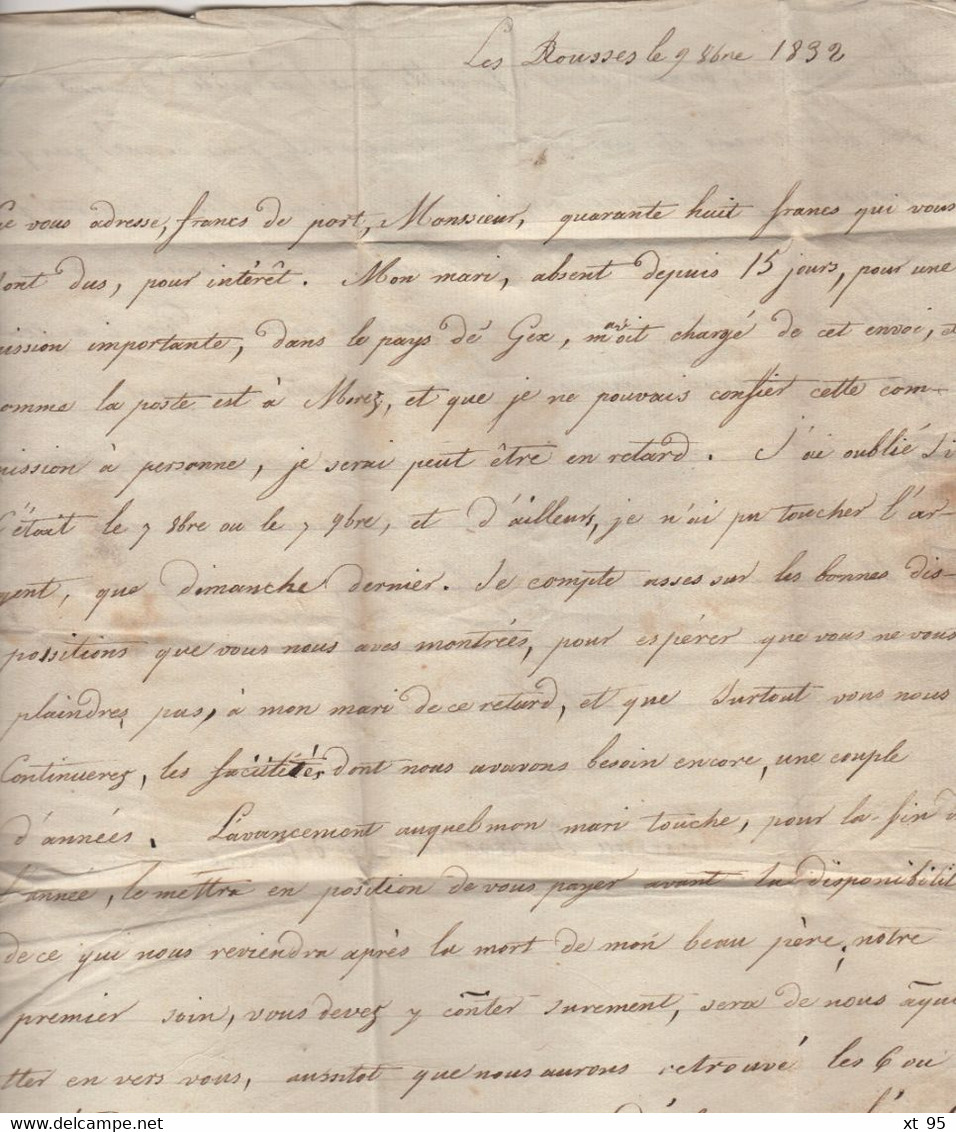 Les Rousses le 9 8bre 1832
Je vous adresse, francs de port, Monssieur, quarante huit francs qui vous
sont dus, pour intérêt. Mon mari, absent depuis 15 jours, pour une
mission importante, dans le pays dé Gex, m'avoit chargé de cet envoi, et
comme la poste est à Morez, et que je ne pouvais confier cette com-
mission à personne, je serai peut être en retard. J'ai oublié si
c'était le 7 8bre ou le 7 9bre, et d'ailleurs, je n'ai pu toucher l'ar-
gent, que dimanche dernier. Je compte asses sur les bonnes dis-
positions que vous nous aves montrées, pour espérer que vous ne vous
plaindres pas, à mon mari de ce retard, et que surtout vous nous
Continuerez, les facilités dont nous avarons besoin encore, une couple
d'années. L'avancement auquel mon mari touche, pour la fin d
l'année, le mettra en position de vous payer avant la disponibilit
de ce qui nous reviendra après la mort de mon beau père. notre
premier soin, vous devez y conter surement, sera de nous aqui
tter en vers vous, aussitot que nous aurons retrouvé les 6 ou
xt 95